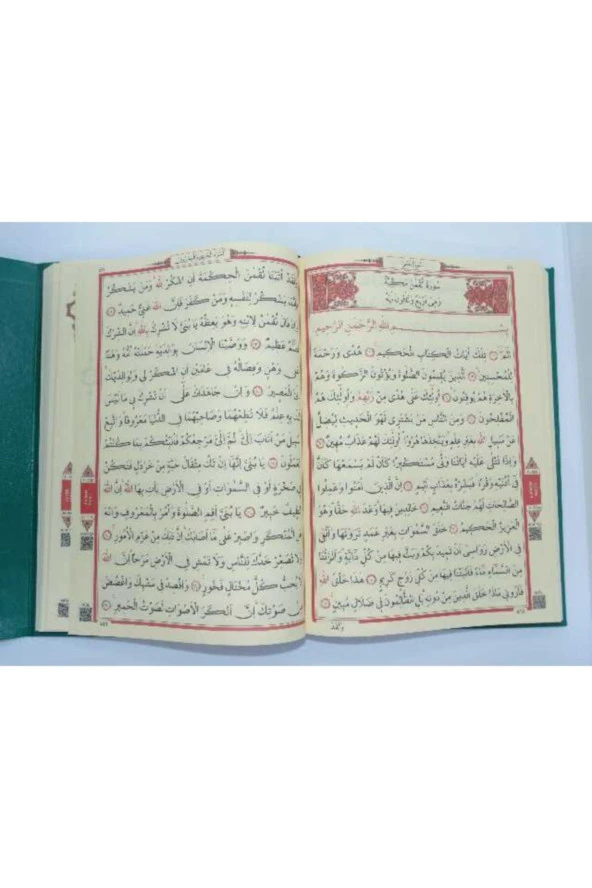 سورة لقمن مكية
وهي اربع وثلثون اية
بسم الله الرحمن الرحيم
الم تلك ايات الكتاب الحكيم هدى ورحمة
للمحسنين الذين يقيمون الصلوة ويؤتون الزكوة وهم
بالاخرة هم يوقنون اولئك على هدى من ربهم واولئك هم
المفلحون ومن الناس من يشترى لهو الحديث ليضل
عن سبيل الله بغير علم ويتخذها هزوا اولئك لهم عذاب مهين
واذا تتلى عليه اياتنا ولى مستكبرا كان لم يسمعها كان
فى اذنيه وقرا فبشره بعذاب اليم ان الذين امنوا وعملوا
الصالحات لهم جنات النعيم خالدين فيها وعد الله حقا وهو
العزيز الحكيم خلق السموات بغير عمد ترونها والقى
فى الارض رواسى ان تميد بكم وبث فيها من كل دابة وانزلنا
من السماء ماء فانبتنا فيها من كل زوج كريم هذا خلق الله
فارونى ماذا خلق الذين من دونه بل الظالمون فى ضلال مبين
ولقد
ولقد اتينا لقمن الحكمة ان اشكر لله ومن يشكر
فانما يشكر لنفسه ومن كفر فان الله غنى حميد
واذ قال لقمن لابنه وهو يعظه يا بنى لا تشرك بالله ان الشرك
لظلم عظيم ووصينا الانسان بوالديه حملته امه وهنا
على وهن وفصاله فى عامين ان اشكر لى ولوالديك
الى المصير وان جاهداك على ان تشرك بى ما ليس
لك به علم فلا تطعهما وصاحبهما فى الدنيا معروفا واتبع
سبيل من اناب الى ثم الى مرجعكم فانبئكم بما كنتم
تعملون يا بنى انها ان تك مثقال حبة من خردل فتكن
فى صخرة او فى السموات او فى الارض يات بها الله ان الله
لطيف خبير يا بنى اقم الصلوة وامر بالمعروف وانه
عن المنكر واصبر على ما اصابك ان ذلك من عزم الامور
ولا تصعر خدك للناس ولا تمش فى الارض مرحا ان الله
لا يحب كل مختال فخور واقصد فى مشيك واغضض
من صوتك ان انكر الاصوات لصوت الحمير